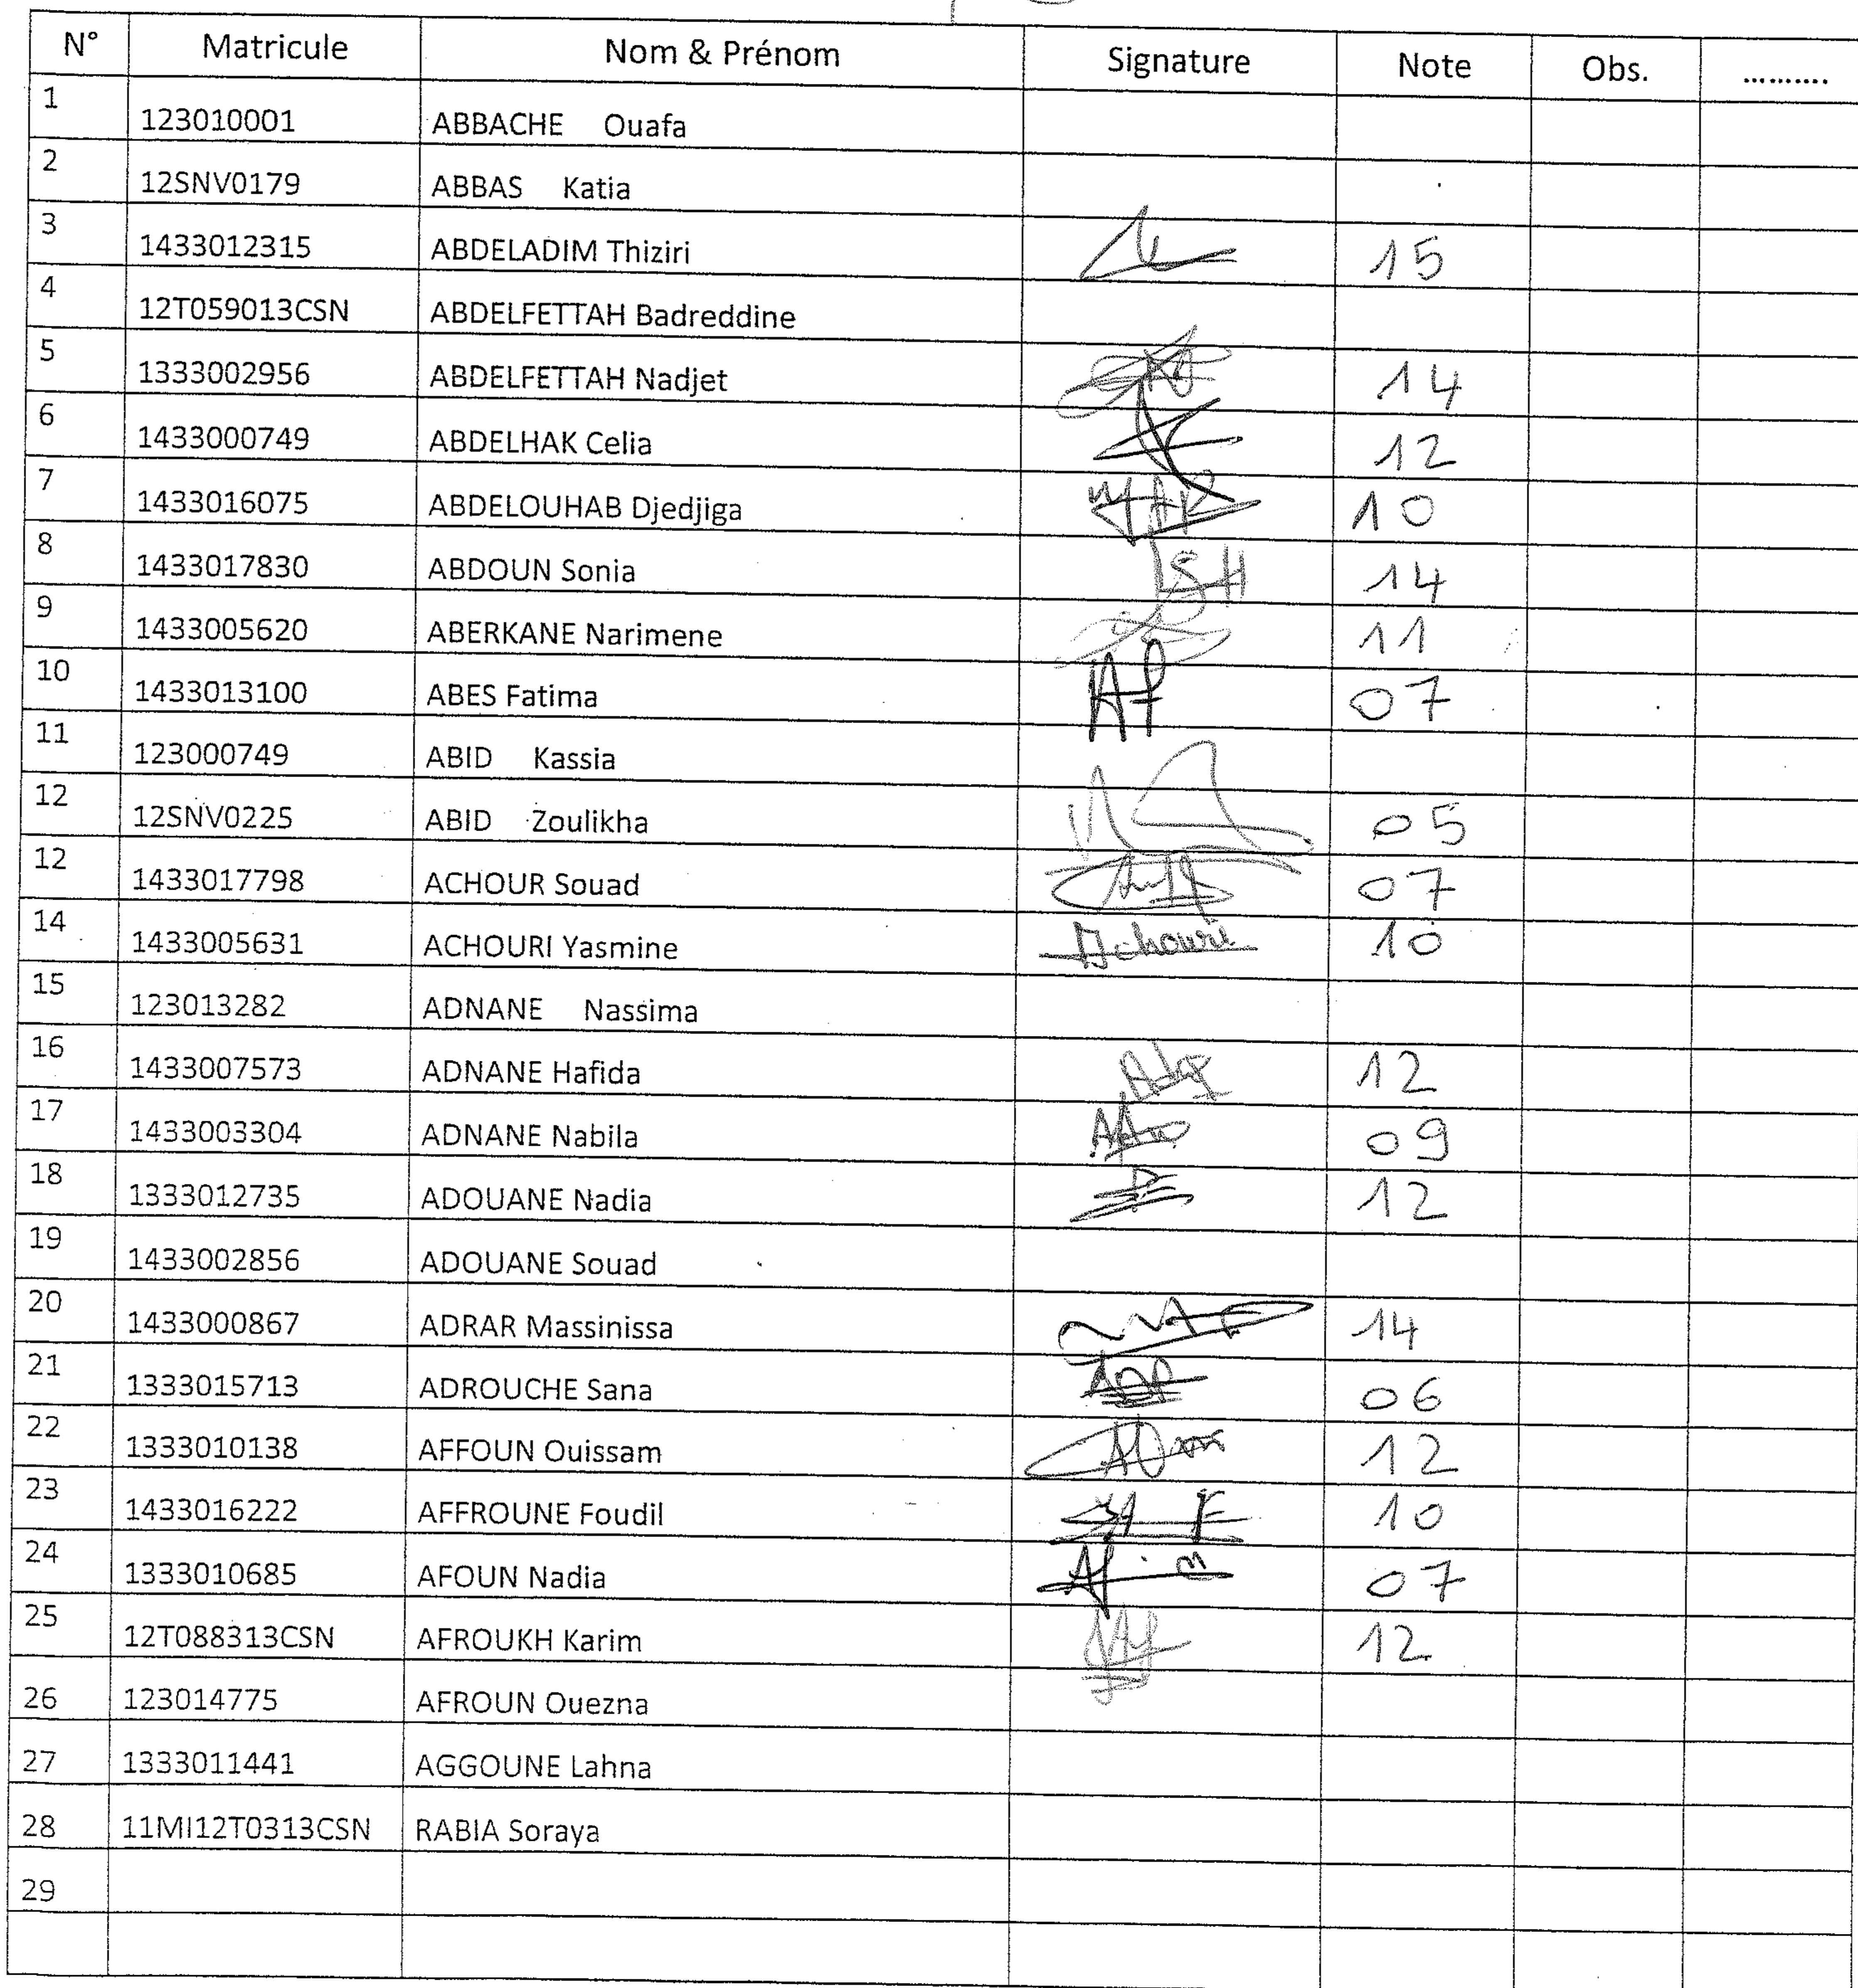 N° Matricule Nom & Prénom Signature Note Obs. ..........
1 123010001 ABBACHE Ouafa
2 12SNV0179 ABBAS Katia
3 1433012315 ABDELADIM Thiziri 15
4 12T059013CSN ABDELFETTAH Badreddine
5 1333002956 ABDELFETTAH Nadjet 14
6 1433000749 ABDELHAK Celia 12
7 1433016075 ABDELOUHAB Djedjiga 10
8 1433017830 ABDOUN Sonia 14
9 1433005620 ABERKANE Narimene 11
10 1433013100 ABES Fatima 07
11 123000749 ABID Kassia
12 12SNV0225 ABID Zoulikha 05
12 1433017798 ACHOUR Souad 07
14 1433005631 ACHOURI Yasmine Achouri 10
15 123013282 ADNANE Nassima
16 1433007573 ADNANE Hafida 12
17 1433003304 ADNANE Nabila 09
18 1333012735 ADOUANE Nadia 12
19 1433002856 ADOUANE Souad
20 1433000867 ADRAR Massinissa 14
21 1333015713 ADROUCHE Sana 06
22 1333010138 AFFOUN Ouissam 12
23 1433016222 AFFROUNE Foudil 10
24 1333010685 AFOUN Nadia 07
25 12T088313CSN AFROUKH Karim 12
26 123014775 AFROUN Ouezna
27 1333011441 AGGOUNE Lahna
28 11MI12T0313CSN RABIA Soraya
29